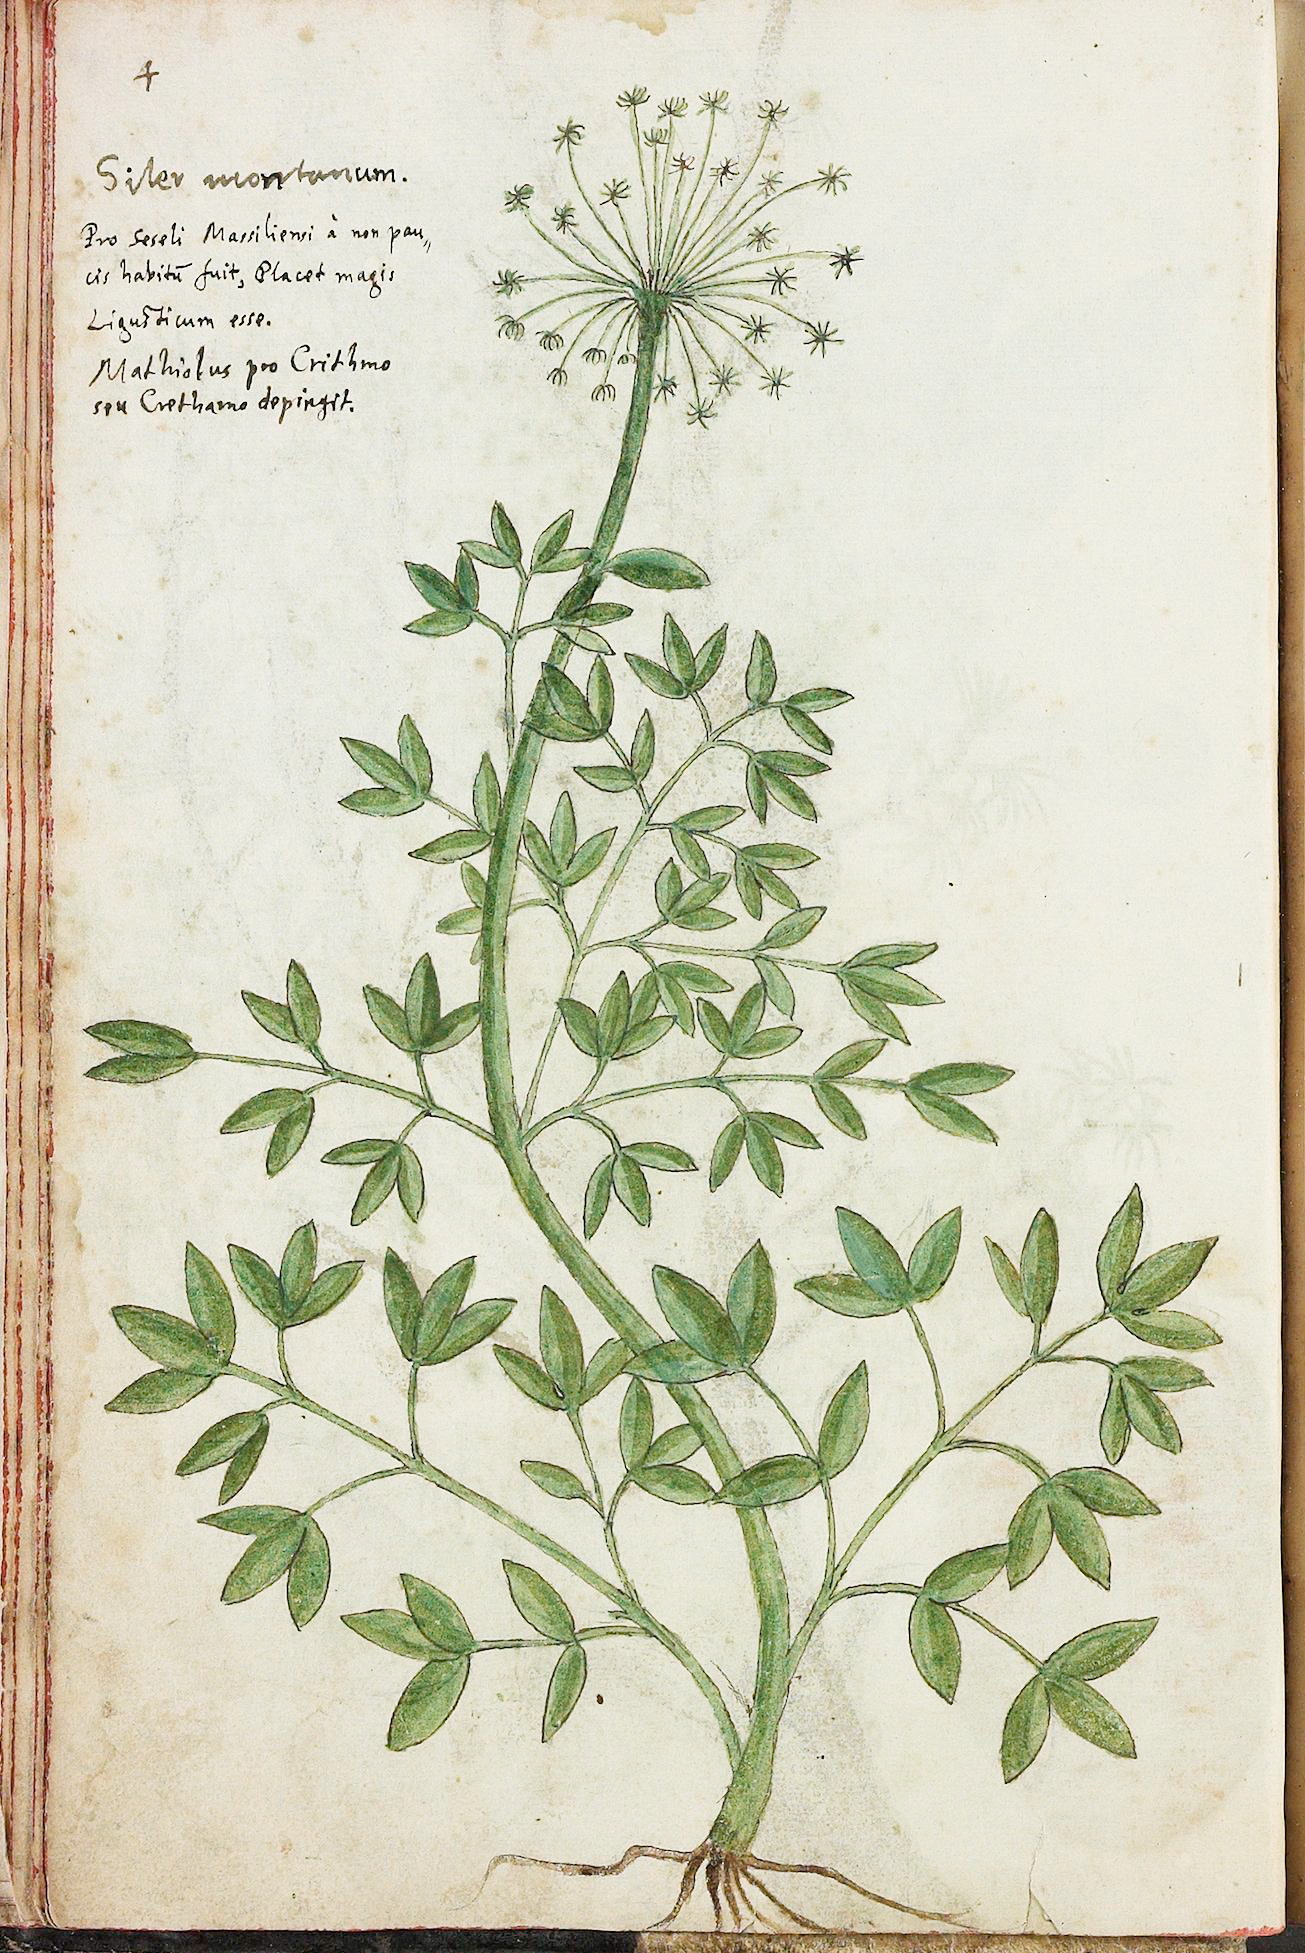 4
Siler montanum.
Pro Seseli Massiliensi à non pau„
cis habitū fuit, Placet magis
Ligusticum esse.
Mathiolus pro Crithmo
seu Crethamo depingit.